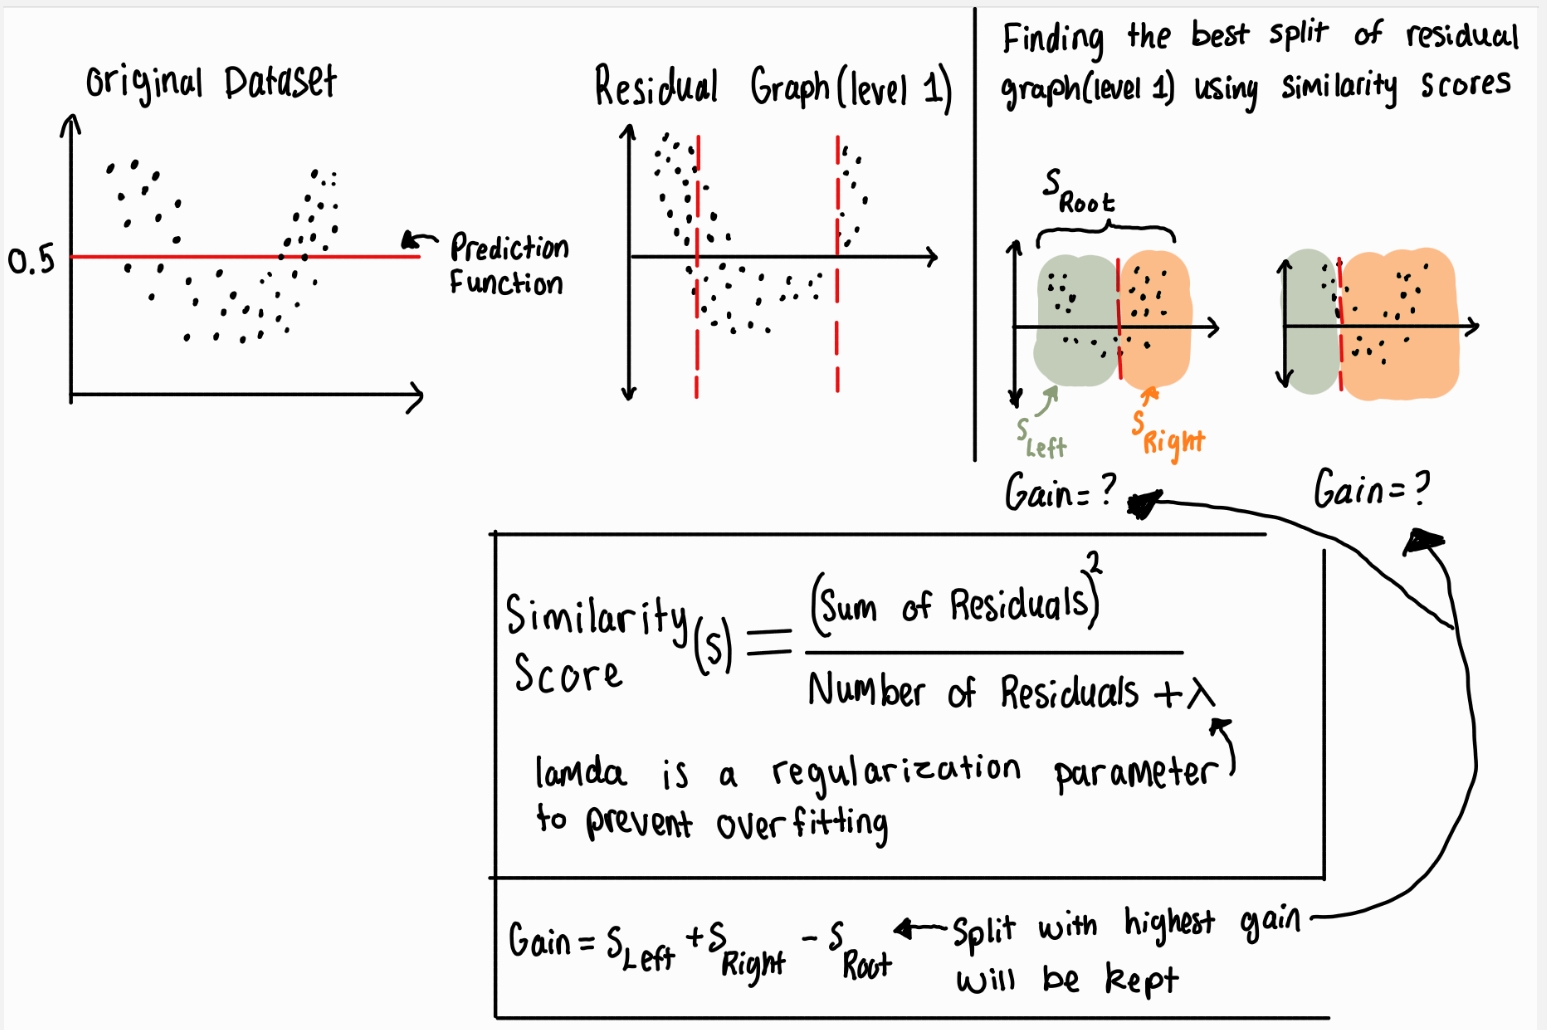 Original Dataset
0.5
Prediction
Function
Residual Graph(level 1)
Finding the best split of residual
graph(level 1) using similarity scores
S Root
S Left
S Right
Gain= ?
Gain= ?
Similarity (S) = (Sum of Residuals)²
Score
Number of Residuals + λ
lamda is a regularization parameter
to prevent overfitting
Gain = S Left + S Right - S Root
Split with highest gain
will be kept